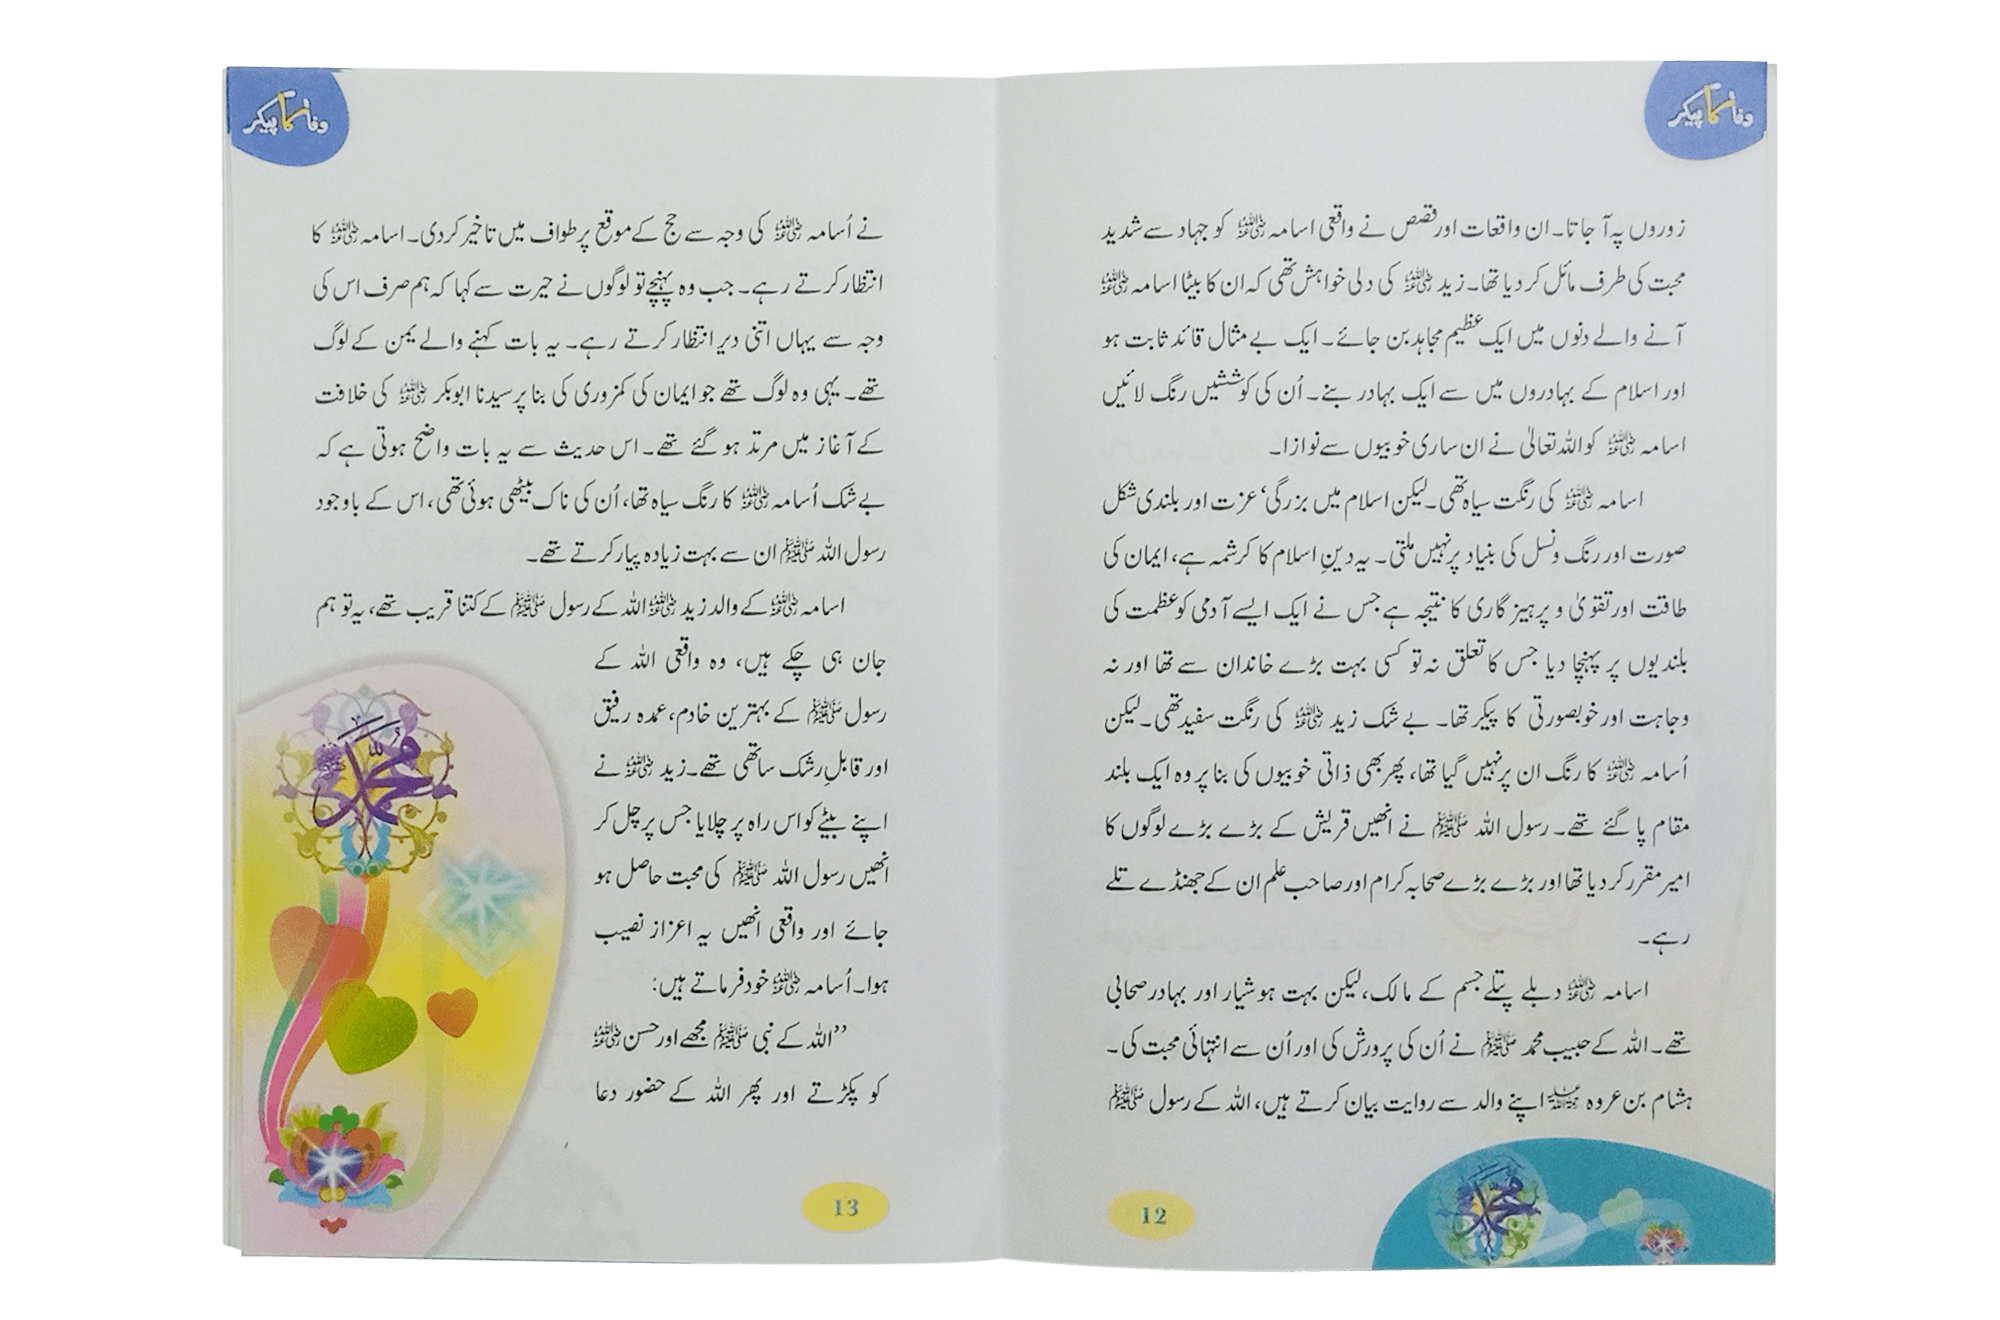 وفا کا پیکر
زوروں پہ آ جاتا۔ ان واقعات اور قصص نے واقعی اسامہ رضی اللہ عنہ کو جہاد سے شدید
محبت کی طرف مائل کر دیا تھا۔ زید رضی اللہ عنہ کی دلی خواہش تھی کہ ان کا بیٹا اسامہ رضی اللہ عنہ
آنے والے دنوں میں ایک عظیم مجاہد بن جائے۔ ایک بے مثال قائد ثابت ہو
اور اسلام کے بہادروں میں سے ایک بہادر بنے۔ اُن کی کوششیں رنگ لائیں
اسامہ رضی اللہ عنہ کو اللہ تعالیٰ نے ان ساری خوبیوں سے نوازا۔
اسامہ رضی اللہ عنہ کی رنگت سیاہ تھی۔ لیکن اسلام میں بزرگی، عزت اور بلندی شکل
صورت اور رنگ ونسل کی بنیاد پر نہیں ملتی۔ یہ دینِ اسلام کا کرشمہ ہے، ایمان کی
طاقت اور تقویٰ و پرہیز گاری کا نتیجہ ہے جس نے ایک ایسے آدمی کو عظمت کی
بلندیوں پر پہنچا دیا جس کا تعلق نہ تو کسی بہت بڑے خاندان سے تھا اور نہ
وجاہت اور خوبصورتی کا پیکر تھا۔ بے شک زید رضی اللہ عنہ کی رنگت سفید تھی۔ لیکن
اُسامہ رضی اللہ عنہ کا رنگ ان پر نہیں گیا تھا، پھر بھی ذاتی خوبیوں کی بنا پر وہ ایک بلند
مقام پا گئے تھے۔ رسول اللہ ﷺ نے انھیں قریش کے بڑے بڑے لوگوں کا
امیر مقرر کر دیا تھا اور بڑے بڑے صحابہ کرام اور صاحب علم ان کے جھنڈے تلے
رہے۔
اسامہ رضی اللہ عنہ دبلے پتلے جسم کے مالک، لیکن بہت ہوشیار اور بہادر صحابی
تھے۔ اللہ کے حبیب محمد ﷺ نے اُن کی پرورش کی اور اُن سے انتہائی محبت کی۔
ہشام بن عروہ رحمۃ اللہ علیہ اپنے والد سے روایت بیان کرتے ہیں، اللہ کے رسول ﷺ
محمد
12
وفا کا پیکر
نے اُسامہ رضی اللہ عنہ کی وجہ سے حج کے موقع پر طواف میں تاخیر کر دی۔ اسامہ رضی اللہ عنہ کا
انتظار کرتے رہے۔ جب وہ پہنچے تو لوگوں نے حیرت سے کہا کہ ہم صرف اس کی
وجہ سے یہاں اتنی دیر انتظار کرتے رہے۔ یہ بات کہنے والے یمن کے لوگ
تھے۔ یہی وہ لوگ تھے جو ایمان کی کمزوری کی بنا پر سیدنا ابوبکر رضی اللہ عنہ کی خلافت
کے آغاز میں مرتد ہو گئے تھے۔ اس حدیث سے یہ بات واضح ہوتی ہے کہ
بے شک اُسامہ رضی اللہ عنہ کا رنگ سیاہ تھا، اُن کی ناک بیٹھی ہوئی تھی، اس کے باوجود
رسول اللہ ﷺ ان سے بہت زیادہ پیار کرتے تھے۔
اسامہ رضی اللہ عنہ کے والد زید رضی اللہ عنہ اللہ کے رسول ﷺ کے کتنا قریب تھے، یہ تو ہم
جان ہی چکے ہیں، وہ واقعی اللہ کے
رسول ﷺ کے بہترین خادم، عمدہ رفیق
اور قابلِ رشک ساتھی تھے۔ زید رضی اللہ عنہ نے
اپنے بیٹے کو اس راہ پر چلایا جس پر چل کر
انھیں رسول اللہ ﷺ کی محبت حاصل ہو
جائے اور واقعی انھیں یہ اعزاز نصیب
ہوا۔ اُسامہ رضی اللہ عنہ خود فرماتے ہیں:
”اللہ کے نبی ﷺ مجھے اور حسن رضی اللہ عنہ
کو پکڑتے اور پھر اللہ کے حضور دعا
محمد ﷺ
13